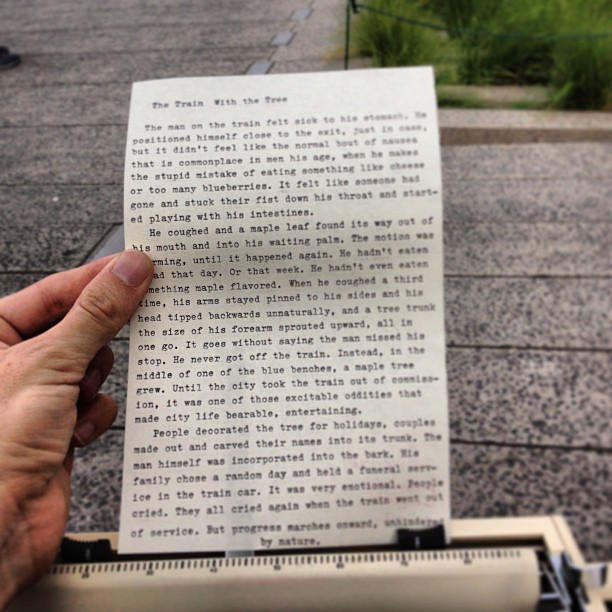 The Train With the Tree
The man on the train felt sick to his stomach. He
positioned himself close to the exit, just in case,
but it didn't feel like the normal bout of nausea
that is commonplace in men his age, when he makes
the stupid mistake of eating something like cheese
or too many blueberries. It felt like someone had
gone and stuck their fist down his throat and start-
ed playing with his intestines.
He coughed and a maple leaf found its way out of
his mouth and into his waiting palm. The motion was
rming, until it happened again. He hadn't eaten
nd that day. Or that week. He hadn't even eaten
omething maple flavored. When he coughed a third
time, his arms stayed pinned to his sides and his
head tipped backwards unnaturally, and a tree trunk
the size of his forearm sprouted upward, all in
one go. It goes without saying the man missed his
stop. He never got off the train. Instead, in the
middle of one of the blue benches, a maple tree
grew. Until the city took the train out of commiss-
ion, it was one of those excitable oddities that
made city life bearable, entertaining.
People decorated the tree for holidays, couples
made out and carved their names into its trunk. The
man himself was incorporated into the bark. His
family chose a random day and held a funeral serv-
ice in the train car. It was very emotional. People
cried. They all cried again when the train went out
of service. But progress marches onward, unhindered
by nature.